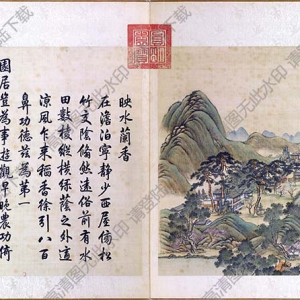 映水蘭香
在澹泊寧靜少西屋傍松
竹交陰翛然遠俗前有水
田數棱縱橫綠蔭之外適
涼風乍來稻香徐引八百
鼻功德茲為第一
園居豈為事遊觀早晚農功倚
高清原图无此水印 请登陆下载